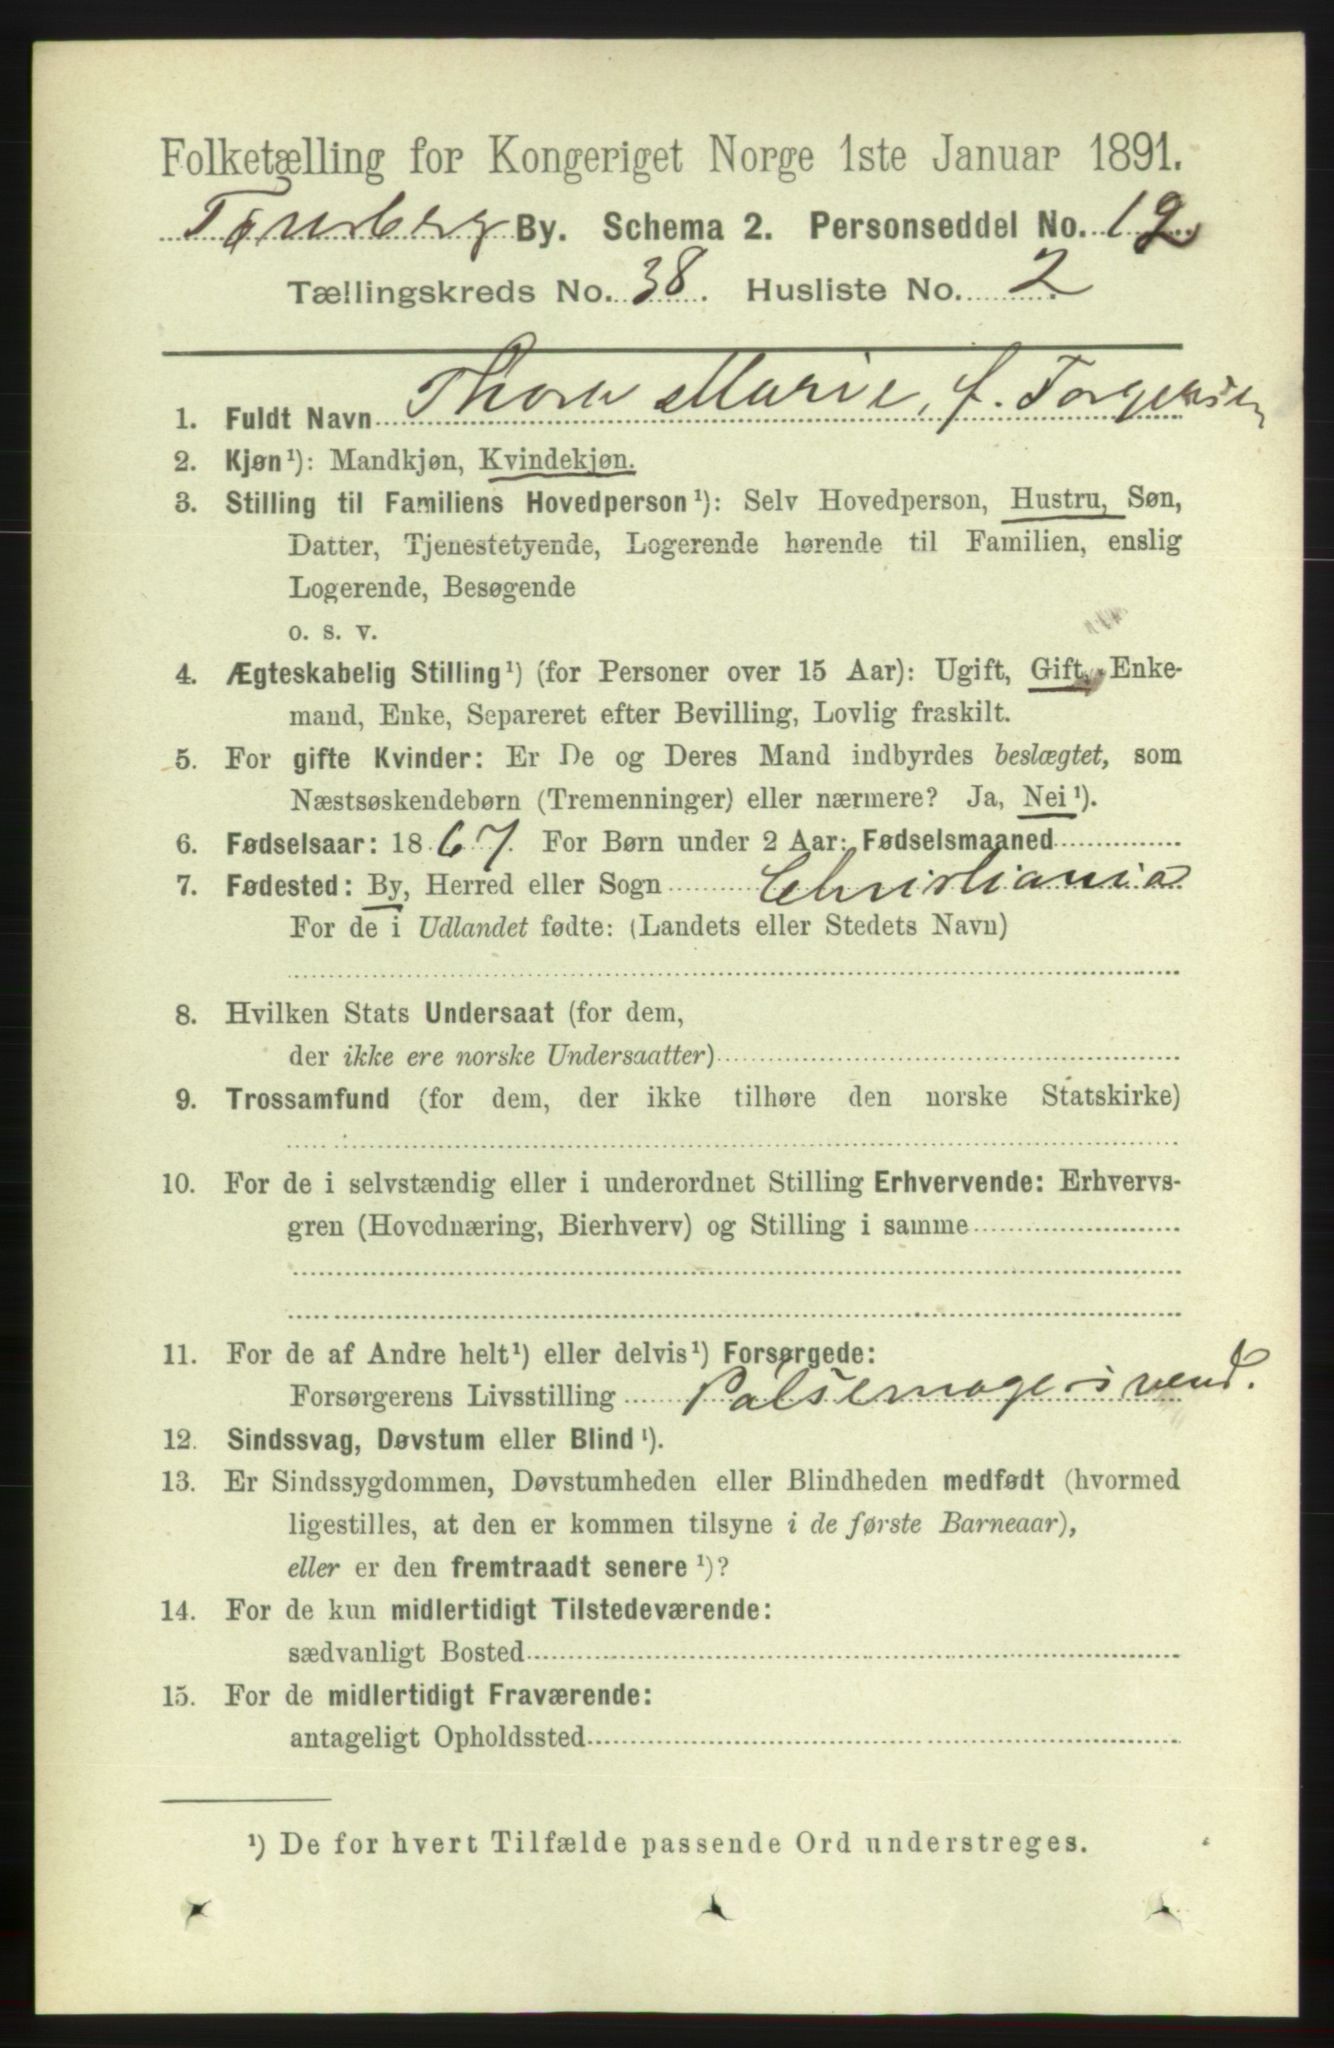 Folketælling for Kongeriget Norge 1ste Januar 1891.
Tønsberg By. Schema 2. Personseddel No. 12
Tællingskreds No. 38. Husliste No. 2
1. Fuldt Navn Thora Marie, f. Torgersen
2. Kjøn¹): Mandkjøn, Kvindekjøn.
3. Stilling til Familiens Hovedperson¹): Selv Hovedperson, Hustru, Søn,
Datter, Tjenestetyende, Logerende hørende til Familien, enslig
Logerende, Besøgende
o. s. v.
4. Ægteskabelig Stilling¹) (for Personer over 15 Aar): Ugift, Gift, Enke-
mand, Enke, Separeret efter Bevilling, Lovlig fraskilt.
5. For gifte Kvinder: Er De og Deres Mand indbyrdes beslægtet, som
Næstsøskendebørn (Tremenninger) eller nærmere? Ja, Nei¹).
6. Fødselsaar: 1867. For Børn under 2 Aar: Fødselsmaaned
7. Fødested: By, Herred eller Sogn Christiania
For de i Udlandet fødte: (Landets eller Stedets Navn)
8. Hvilken Stats Undersaat (for dem,
der ikke ere norske Undersaatter)
9. Trossamfund (for dem, der ikke tilhøre den norske Statskirke)
10. For de i selvstændig eller i underordnet Stilling Erhvervende: Erhvervs-
gren (Hovednæring, Bierhverv) og Stilling i samme
11. For de af Andre helt¹) eller delvis¹) Forsørgede:
Forsørgerens Livsstilling Pølsemagersvend.
12. Sindssvag, Døvstum eller Blind¹).
13. Er Sindssygdommen, Døvstumheden eller Blindheden medfødt (hvormed
ligestilles, at den er kommen tilsyne i de første Barneaar),
eller er den fremtraadt senere¹)?
14. For de kun midlertidigt Tilstedeværende:
sædvanligt Bosted
15. For de midlertidigt Fraværende:
antageligt Opholdssted
¹) De for hvert Tilfælde passende Ord understreges.